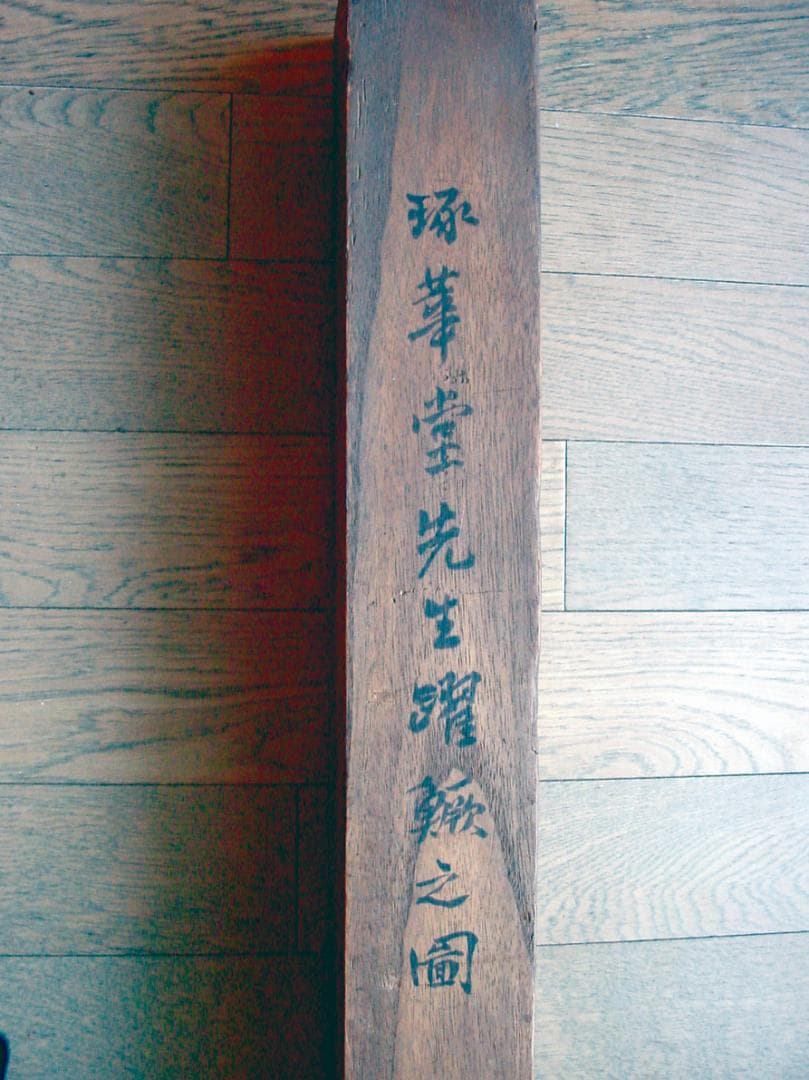 琢華堂先生躍鱖之圖